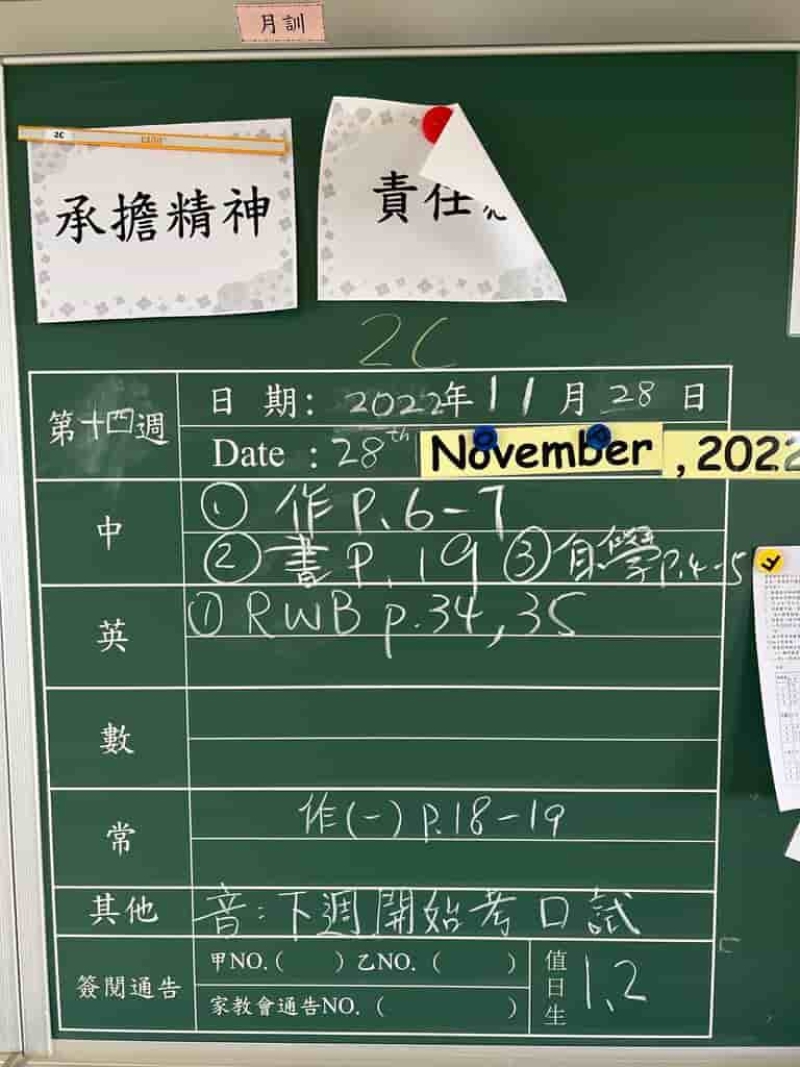 月訓
2C
承擔精神
責任
2C
第十四週
日 期：2022年11月28日
Date ：28th November, 2022
中
① 作 P.6-7
② 書 P.19 ③ 自學 P.4-5
英
① RWB p.34, 35
數
常
作(一) P.18-19
其他
音：下週開始考口試
簽閱通告
甲NO.（ ）乙NO.（ ）
家教會通告NO.（ ）
值日生
1、2